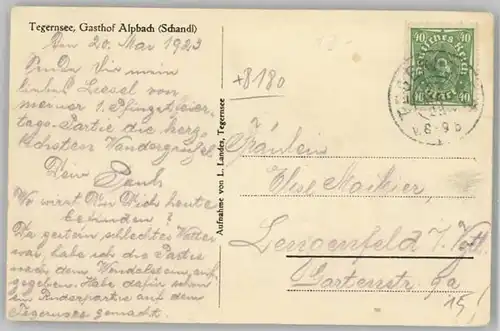 Tegernsee, Gasthof Alpbach (Schandl)
Den 20. Mai 1923
Sende Dir mein
liebes Liesel von
meiner 1. Pfingstfeier-
tags-Partie die herz-
lichsten Wandergrüße
Dein
Wo wirst Du Dich heute
befinden?
Da gestern schlechtes Wetter
war, habe ich die Partie
nach dem Wendelstein auf-
gegeben. Habe dafür schon
ein Ruderpartie auf dem
Tegernsee gemacht.
Aufnahme von L. Landes, Tegernsee
+8180
40 40
Deutsches Reich
40 40
Fräulein
Else
Lengenfeld i/ Vgtl.
Gartenstr. 9a
15/